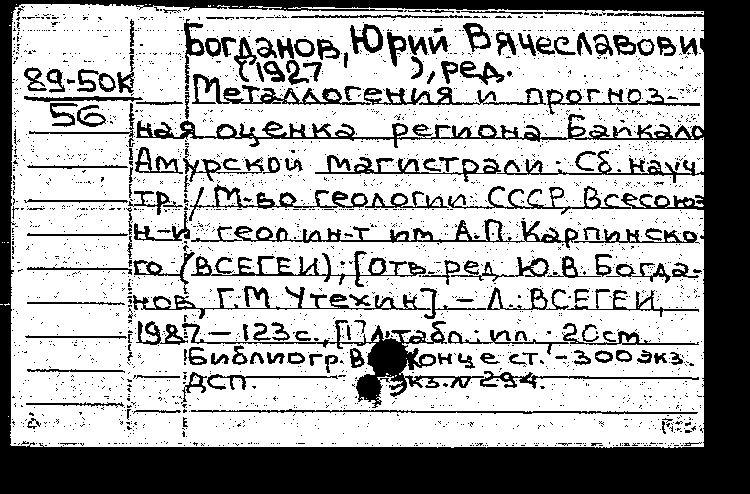 Богданов, Юрий Вячеславович
(1927 ), ред.
89-50К
56
Металлогения и прогноз-
ная оценка региона Байкало
Амурской магистрали: Сб. науч.
тр. / М-во геологии СССР, Всесоюз
н-и. геол ин-т им. А.П. Карпинско-
го (ВСЕГЕИ); [Отв. ред. Ю.В. Богда-
нов, Г.М. Утехин]. – Л.: ВСЕГЕИ,
1987. – 123 с., [1] л. табл.: ил.; 20 см.
Библиогр. в конце ст. – 300 экз.
ДСП. Экз. N 294.